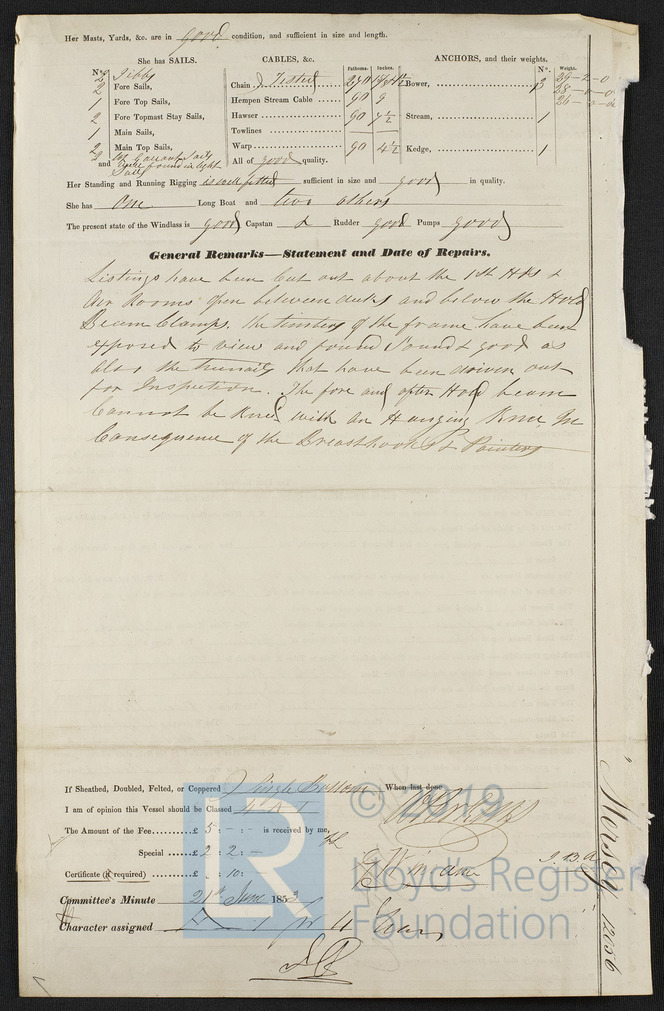 Her Masts, Yards, &c. are in good condition, and sufficient in size and length.
She has SAILS.
CABLES, &c.
Fathoms. Inches.
ANCHORS, and their weights.
Nº. Weight.
Nº.
2 Jibbs
2 Fore Sails,
1 Fore Top Sails,
2 Fore Topmast Stay Sails,
1 Main Sails,
2 Main Top Sails,
and
Chain Tested 270
Hempen Stream Cable 90 9
Hawser 90
Towlines
Warp 90 4½
All of good quality.
Bower, 3 29-2-0
28-0-0
Stream, 1
Kedge, 1
Her Standing and Running Rigging is well fitted sufficient in size and good in quality.
She has One Long Boat and two others
The present state of the Windlass is good Capstan Rudder good Pumps good
General Remarks—Statement and Date of Repairs.
Listings have been Cut out about the 1st Hks &
Air Rooms open between decks and below the Hold
Beam Clamps. the timbers of the frame have been
exposed to view and found Sound & good as
also the trunails that have been driven out
for Inspection. The fore and after Hold beam
Cannot be Kneed with an Hanging Knee In
Consequence of the Breasthooks & Pointers
If Sheathed, Doubled, Felted, or Coppered Single Bottom When last done
I am of opinion this Vessel should be Classed 4 A 1
The Amount of the Fee £ 5 : - : - is received by me,
Special £ 2 : 2 : -
Certificate (if required) £ : 10 :
Committee's Minute 21st June 185
Character assigned A 1 for 4 Years
© 2019
Lloyd's Register
Foundation
LR
Mersey 12056